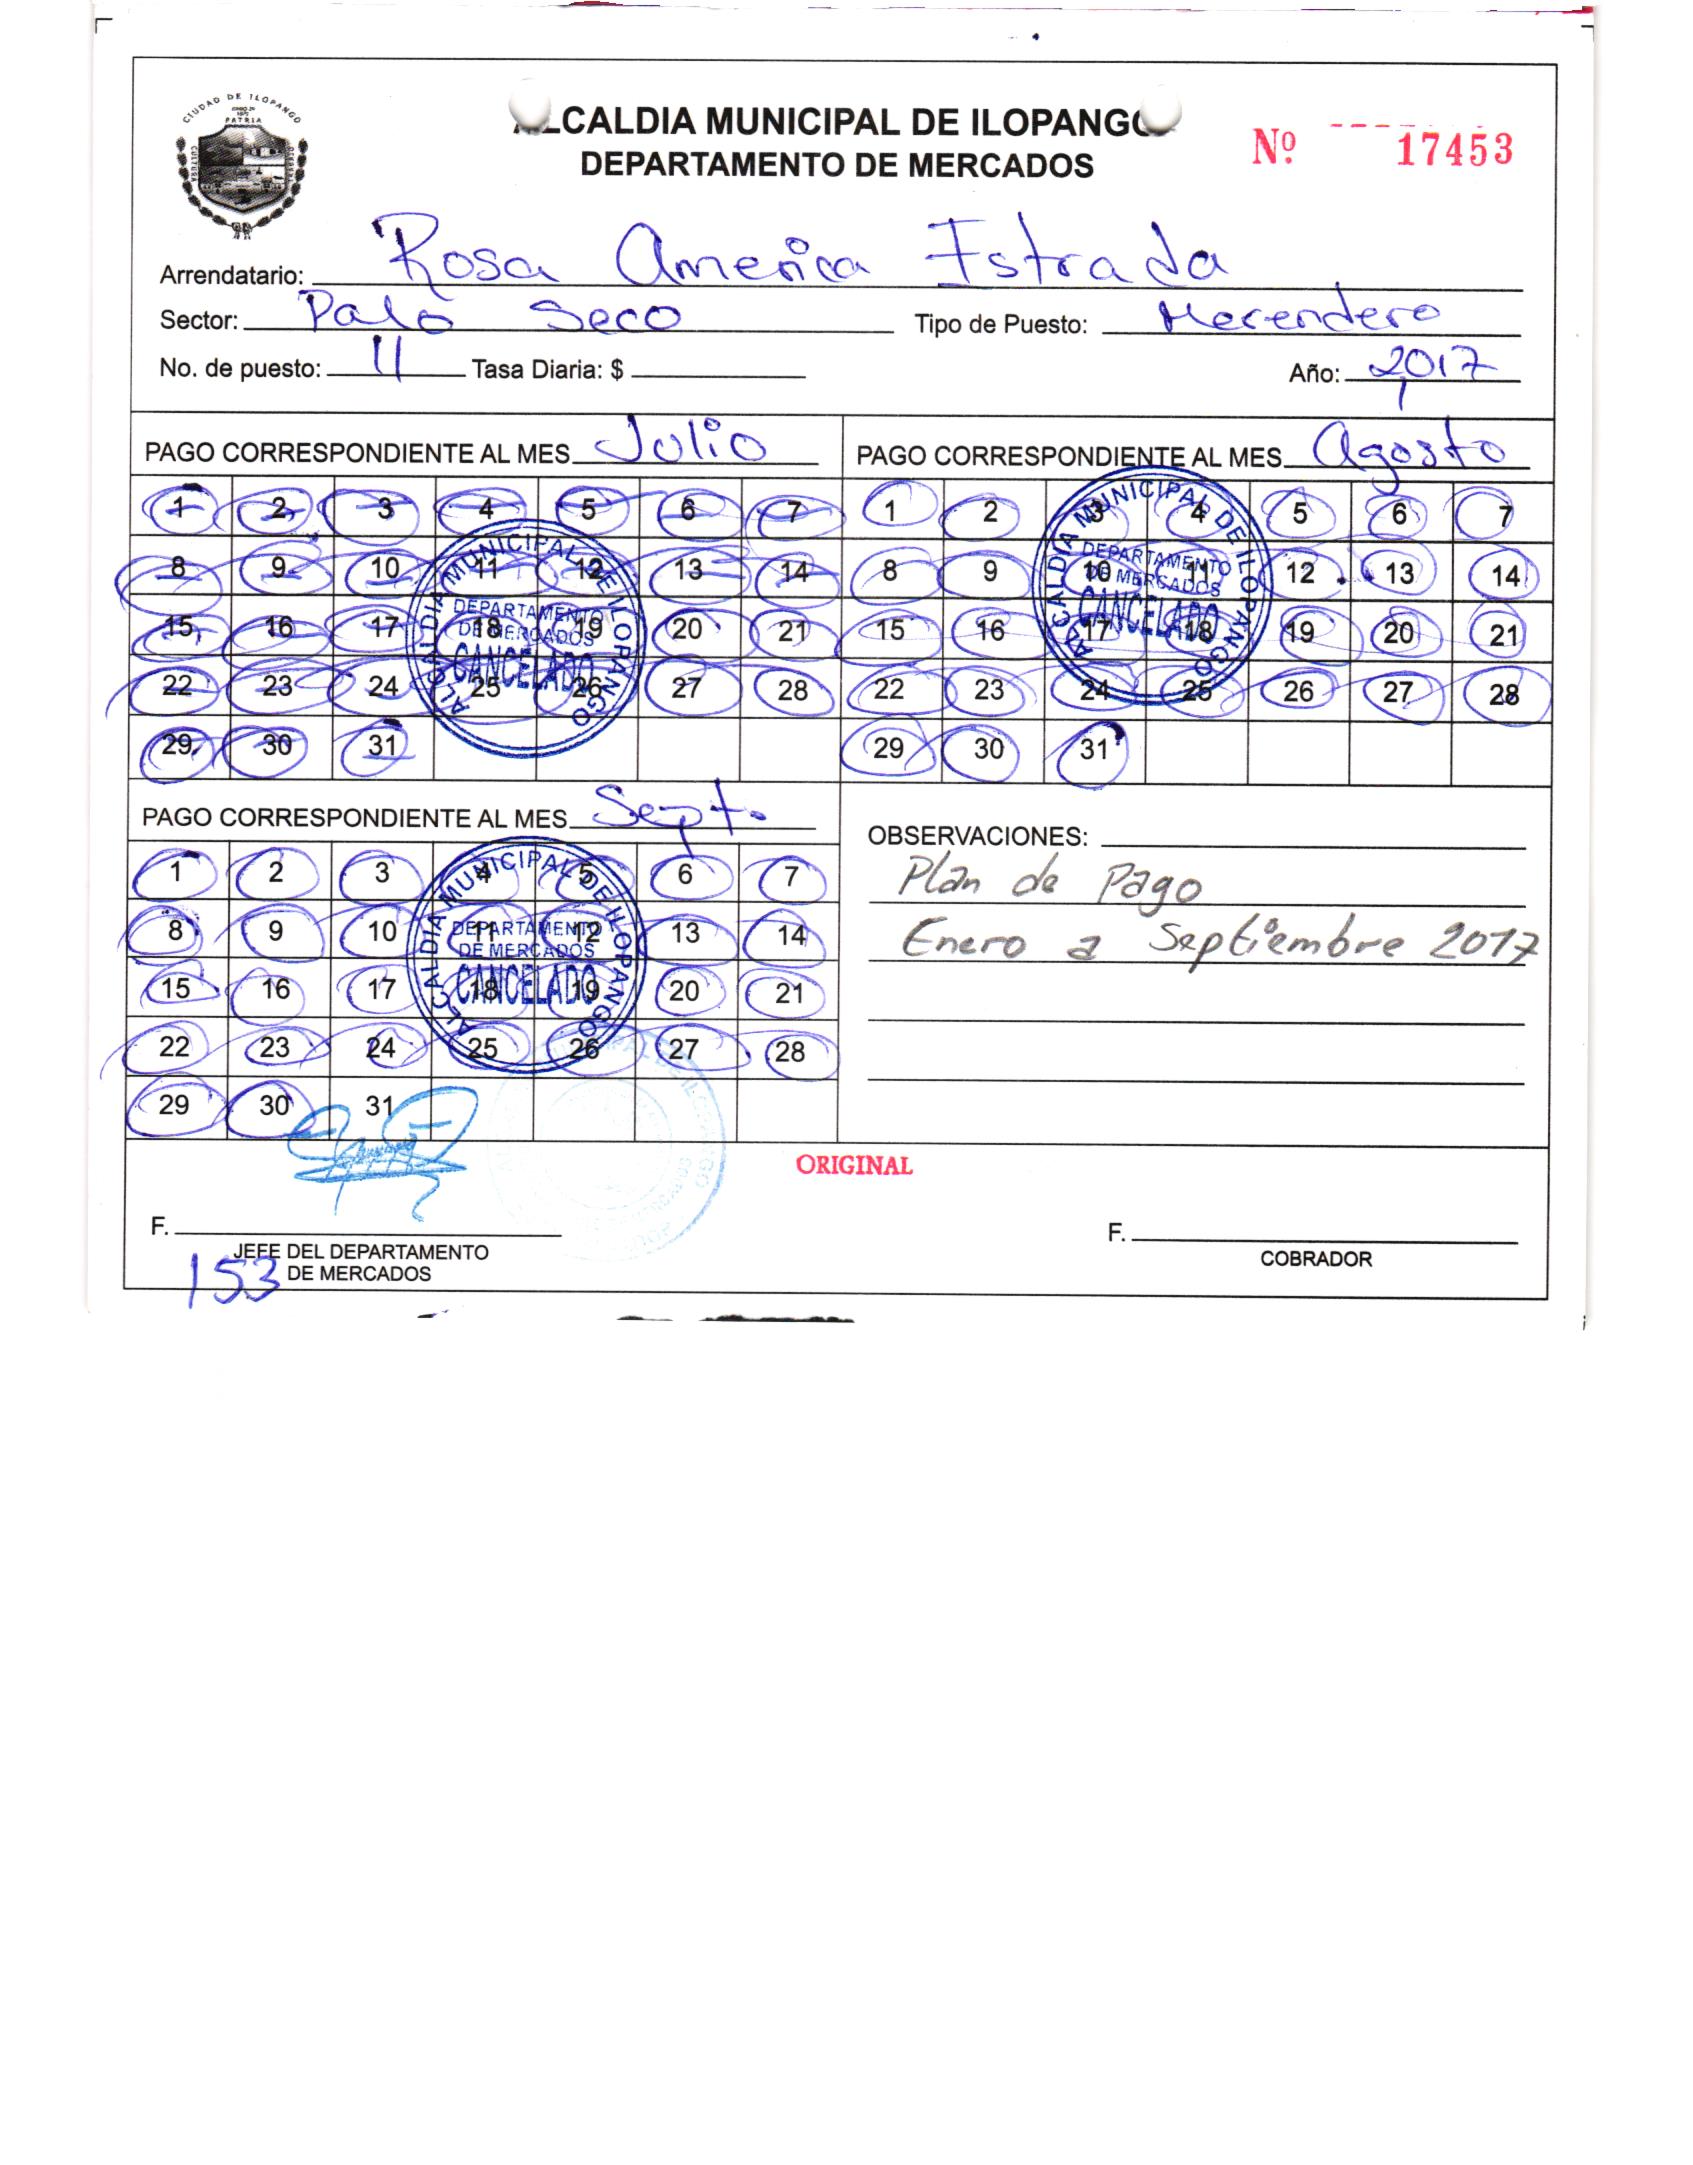 CIUDAD DE ILOPANGO
PATRIA
CULTURA
ALCALDIA MUNICIPAL DE ILOPANGO
DEPARTAMENTO DE MERCADOS
Nº 17453
Arrendatario: Rosa America Estrada
Sector: Palo Seco Tipo de Puesto: Merendero
No. de puesto: 11 Tasa Diaria: $ Año: 2017
PAGO CORRESPONDIENTE AL MES Julio
1 2 3 4 5 6 7
8 9 10 11 12 13 14
15 16 17 18 19 20 21
22 23 24 25 26 27 28
29 30 31
ALCALDIA MUNICIPAL DE ILOPANGO
DEPARTAMENTO
DE MERCADOS
CANCELADO
PAGO CORRESPONDIENTE AL MES Agosto
1 2 3 4 5 6 7
8 9 10 11 12 13 14
15 16 17 18 19 20 21
22 23 24 25 26 27 28
29 30 31
ALCALDIA MUNICIPAL DE ILOPANGO
DEPARTAMENTO
DE MERCADOS
CANCELADO
PAGO CORRESPONDIENTE AL MES Sept.
1 2 3 4 5 6 7
8 9 10 11 12 13 14
15 16 17 18 19 20 21
22 23 24 25 26 27 28
29 30 31
ALCALDIA MUNICIPAL DE ILOPANGO
DEPARTAMENTO
DE MERCADOS
CANCELADO
OBSERVACIONES:
Plan de Pago
Enero a Septiembre 2017
ORIGINAL
F.
JEFE DEL DEPARTAMENTO
DE MERCADOS
153
F.
COBRADOR